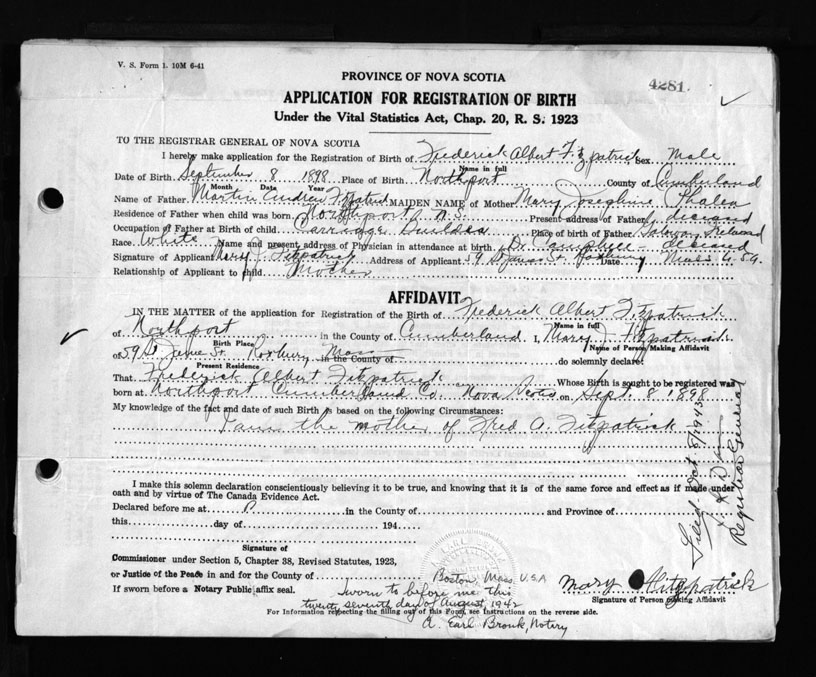 V. S. Form 1. 10M 6-41
4281
PROVINCE OF NOVA SCOTIA
APPLICATION FOR REGISTRATION OF BIRTH
Under the Vital Statistics Act, Chap. 20, R. S. 1923
TO THE REGISTRAR GENERAL OF NOVA SCOTIA
I hereby make application for the Registration of Birth of Frederick Albert Fitzpatrick Sex Male
Name in full
Date of Birth September 8 1898 Place of Birth Northport County of Cumberland
Month Date Year
Name of Father Martin Andrew Fitzpatrick MAIDEN NAME of Mother Mary Josephine
Residence of Father when child was born Northport N. S. Present address of Father deceased
Occupation of Father at Birth of child Carriage Builder Place of birth of Father Ireland
Race White Name and present address of Physician in attendance at birth Dr. deceased
Signature of Applicant Mary J. Fitzpatrick Address of Applicant 59 St. James St. Roxbury Date Mass
Relationship of Applicant to child Mother
AFFIDAVIT
IN THE MATTER of the application for Registration of the Birth of Frederick Albert Fitzpatrick
Name in full
of Northport in the County of Cumberland I, Mary J. Fitzpatrick
Birth Place Name of Person Making Affidavit
of 59 St. James St. Roxbury Mass in the County of do solemnly declare:
Present Residence
That Frederick Albert Fitzpatrick Whose Birth is sought to be registered was
born at Northport Cumberland Co. Nova Scotia on Sept. 8 1898
My knowledge of the fact and date of such Birth is based on the following Circumstances:
I am the mother of Fred A. Fitzpatrick
I make this solemn declaration conscientiously believing it to be true, and knowing that it is of the same force and effect as if made under
oath and by virtue of The Canada Evidence Act.
Declared before me at in the County of and Province of
this day of 194
Signature of
Commissioner under Section 5, Chapter 38, Revised Statutes, 1923,
or Justice of the Peace in and for the County of
If sworn before a Notary Public affix seal.
Boston, Mass. U.S.A
Sworn to before me this
twenty seventh day of August, 1942
A. Earl Bronk, Notery
Mary Fitzpatrick
Signature of Person making Affidavit
For Information respecting the filling out of this Form, see Instructions on the reverse side.
Filed Oct 5/1943
Registrar General